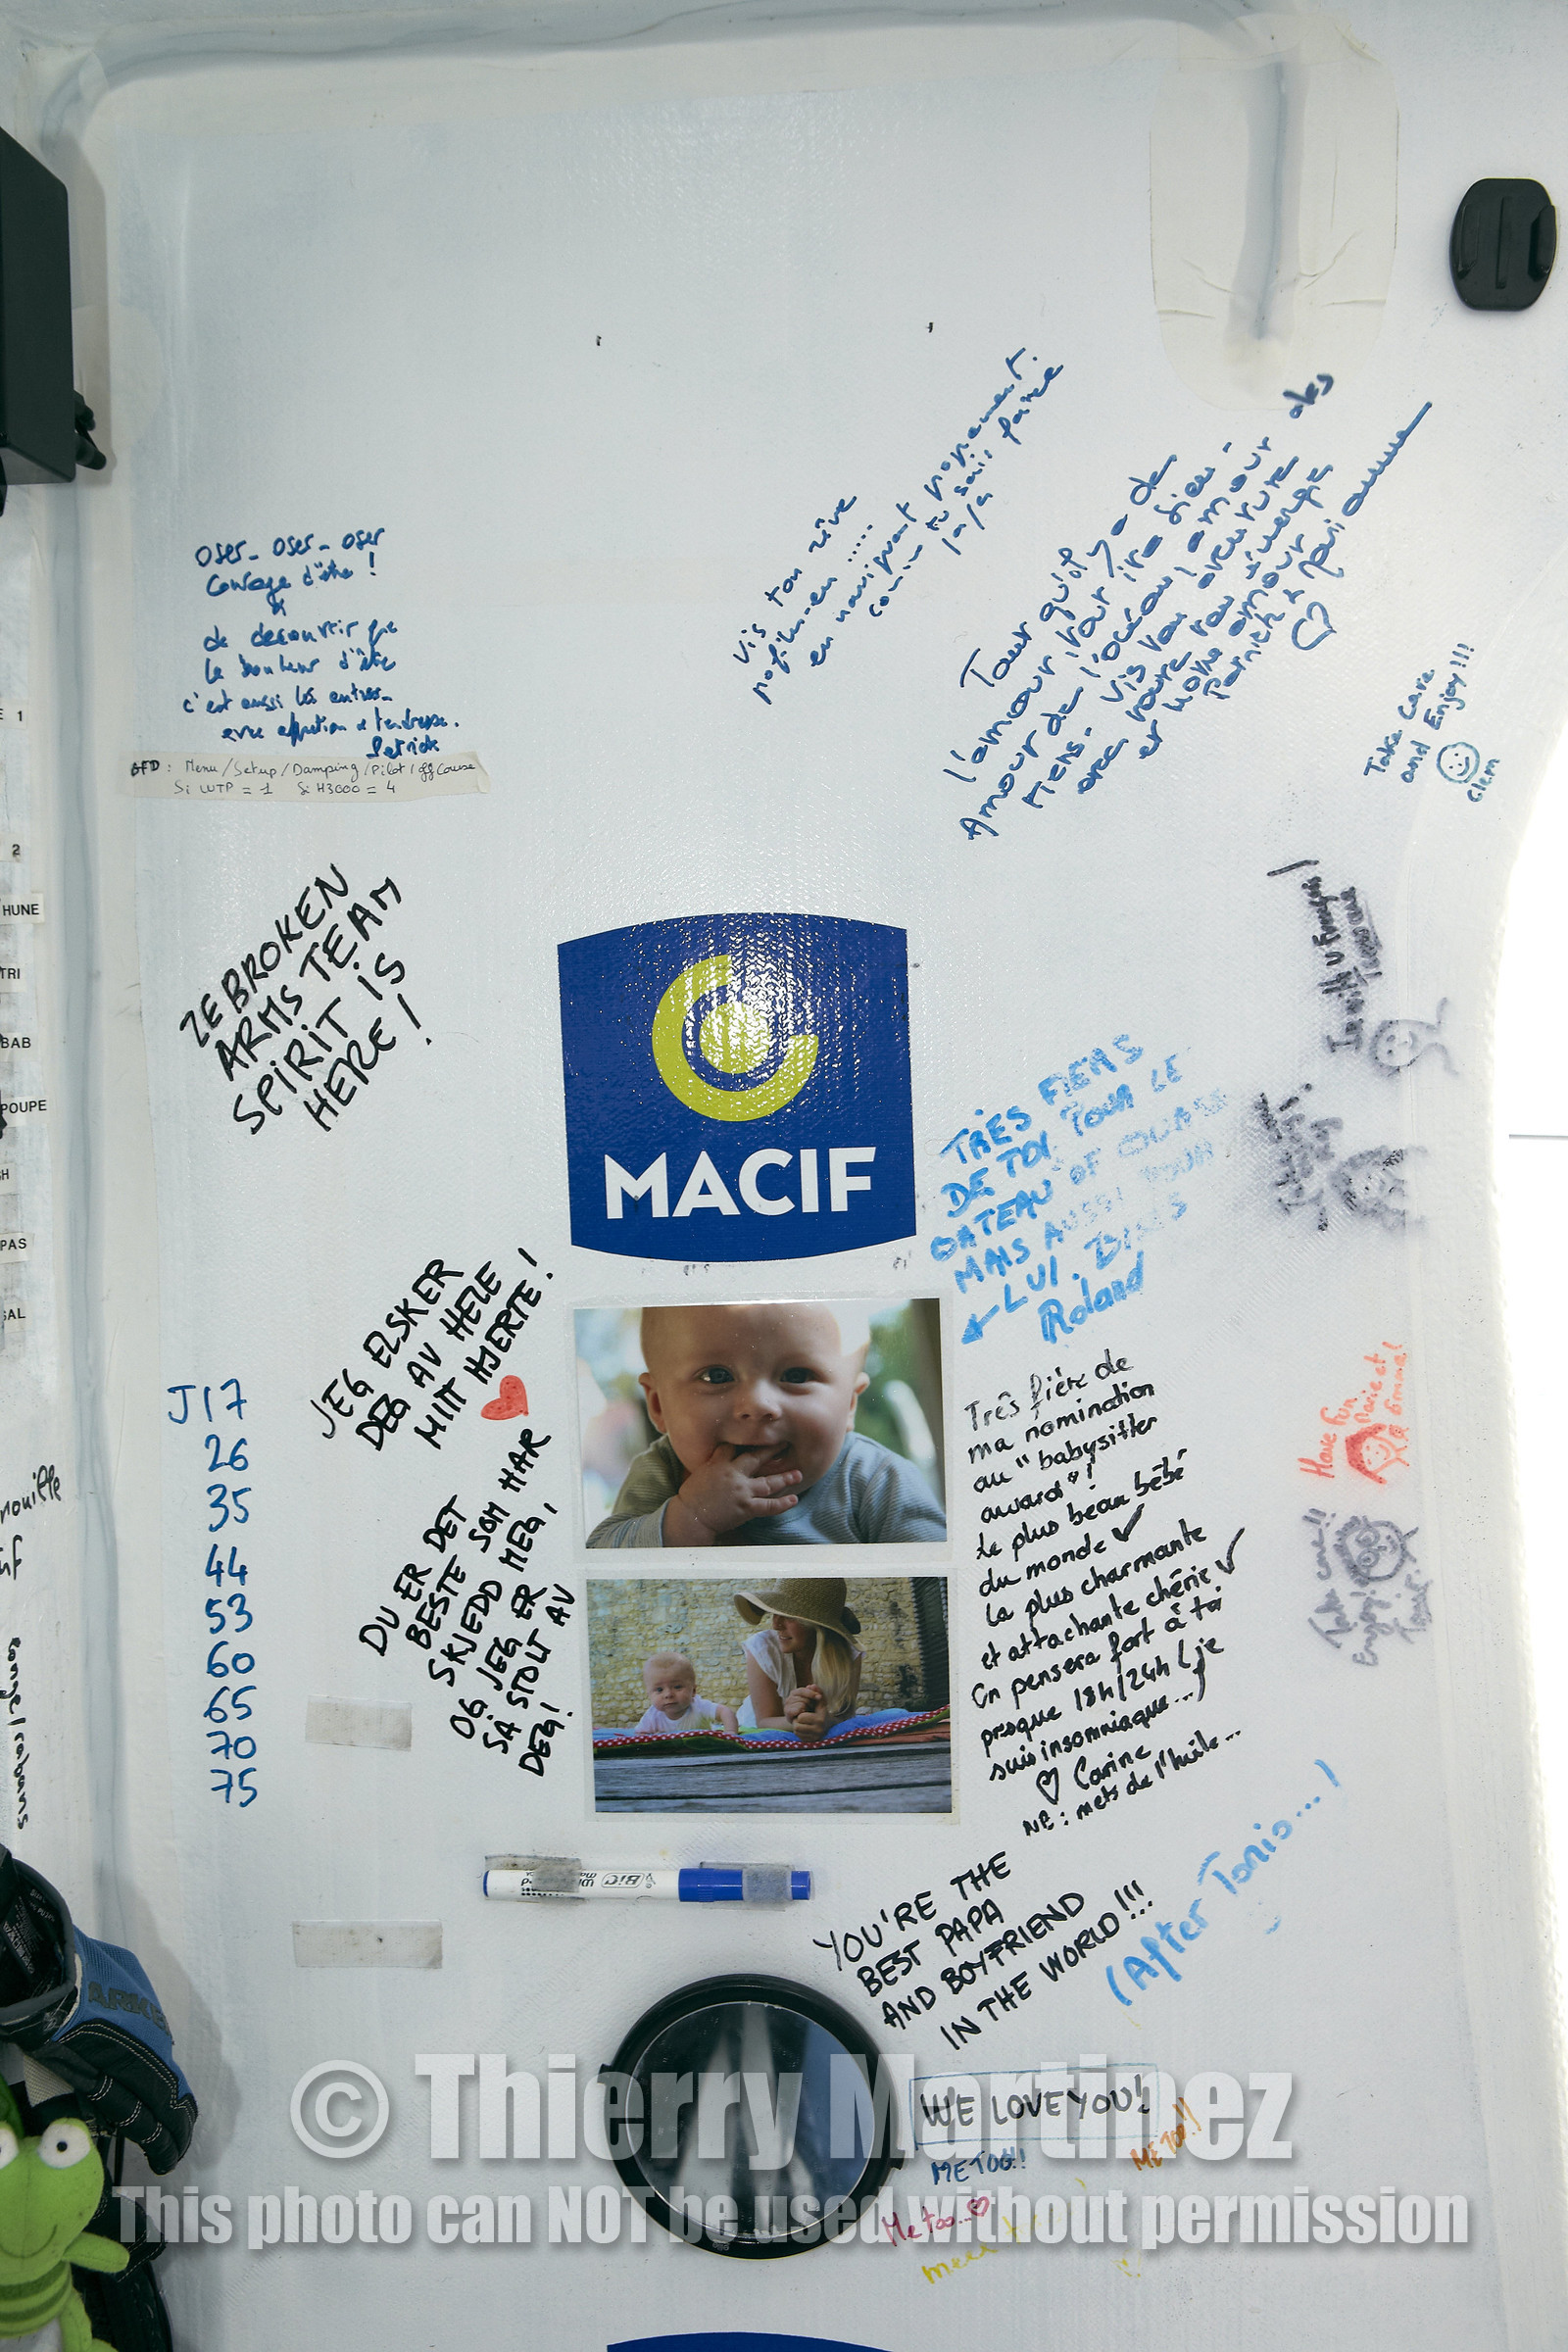 oser_ oser_ oser
Courage d'être !
&
de decouvrir que
le bonheur d'être
c'est aussi les autres_
avec affection & tendresse.
Patrick
GFD : Menu/Setup/Damping/Pilot/off Course
Si WTP = 1 Si H3000 = 4
Vis ton rêve
en naviguant proprement.
comme tu sais faire
Tant qu'il y a de
l'amour, tout ira bien -
Amour de l'océan, amour des
tiens.
Patrick &
Take Care
and Enjoy!!!
Clem
1
2
HUNE
TRI
BAB
POUPE
PAS
ZE BROKEN
ARMS TEAM
SPIRIT IS
HERE !
MACIF
TRÈS FIERS
DE TOI POUR LE
BATEAU OF COURSE
MAIS AUSSI POUR
LUI. BISES
Roland
JEG ELSKER
DEG AV HELE
MITT HJERTE!
DU ER DET
BESTE SOM HAR
SKJEDD MEG,
OG JEG ER
SÅ STOLT AV
DEG!
J17
26
35
44
53
60
65
70
75
Très fière de
ma nomination
au "babysitter
award"!
le plus beau bébé
du monde ✓
La plus charmante
et attachante chérie ✓
On pensera fort à toi
presque 18h/24h (je
suis insomniaque...)
♡ Carine
NB : mets de l'huile...
Have fun
Marie et
Take care!!
Enjoy!
BIC
YOU'RE THE
BEST PAPA
AND BOYFRIEND
IN THE WORLD!!!
(After Tonio...!
WE LOVE YOU!!
ME TOO!!
ME TOO!!
Me too...♡
© Thierry Martinez
This photo can NOT be used without permission